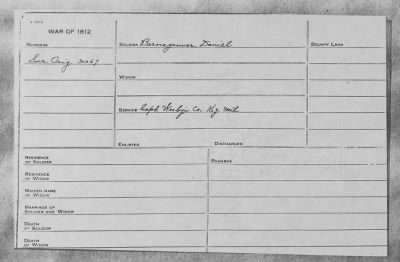 WAR OF 1812
NUMBERS
SOLDIER Barnegrover Daniel
BOUNTY LAND
Sur. Orig 30067
WIDOW
SERVICE Capt. Co. Ky. Mil
ENLISTED
DISCHARGED
RESIDENCE OF SOLDIER
REMARKS
RESIDENCE OF WIDOW
MAIDEN NAME OF WIDOW
MARRIAGE OF SOLDIER AND WIDOW
DEATH OF SOLDIER
DEATH OF WIDOW